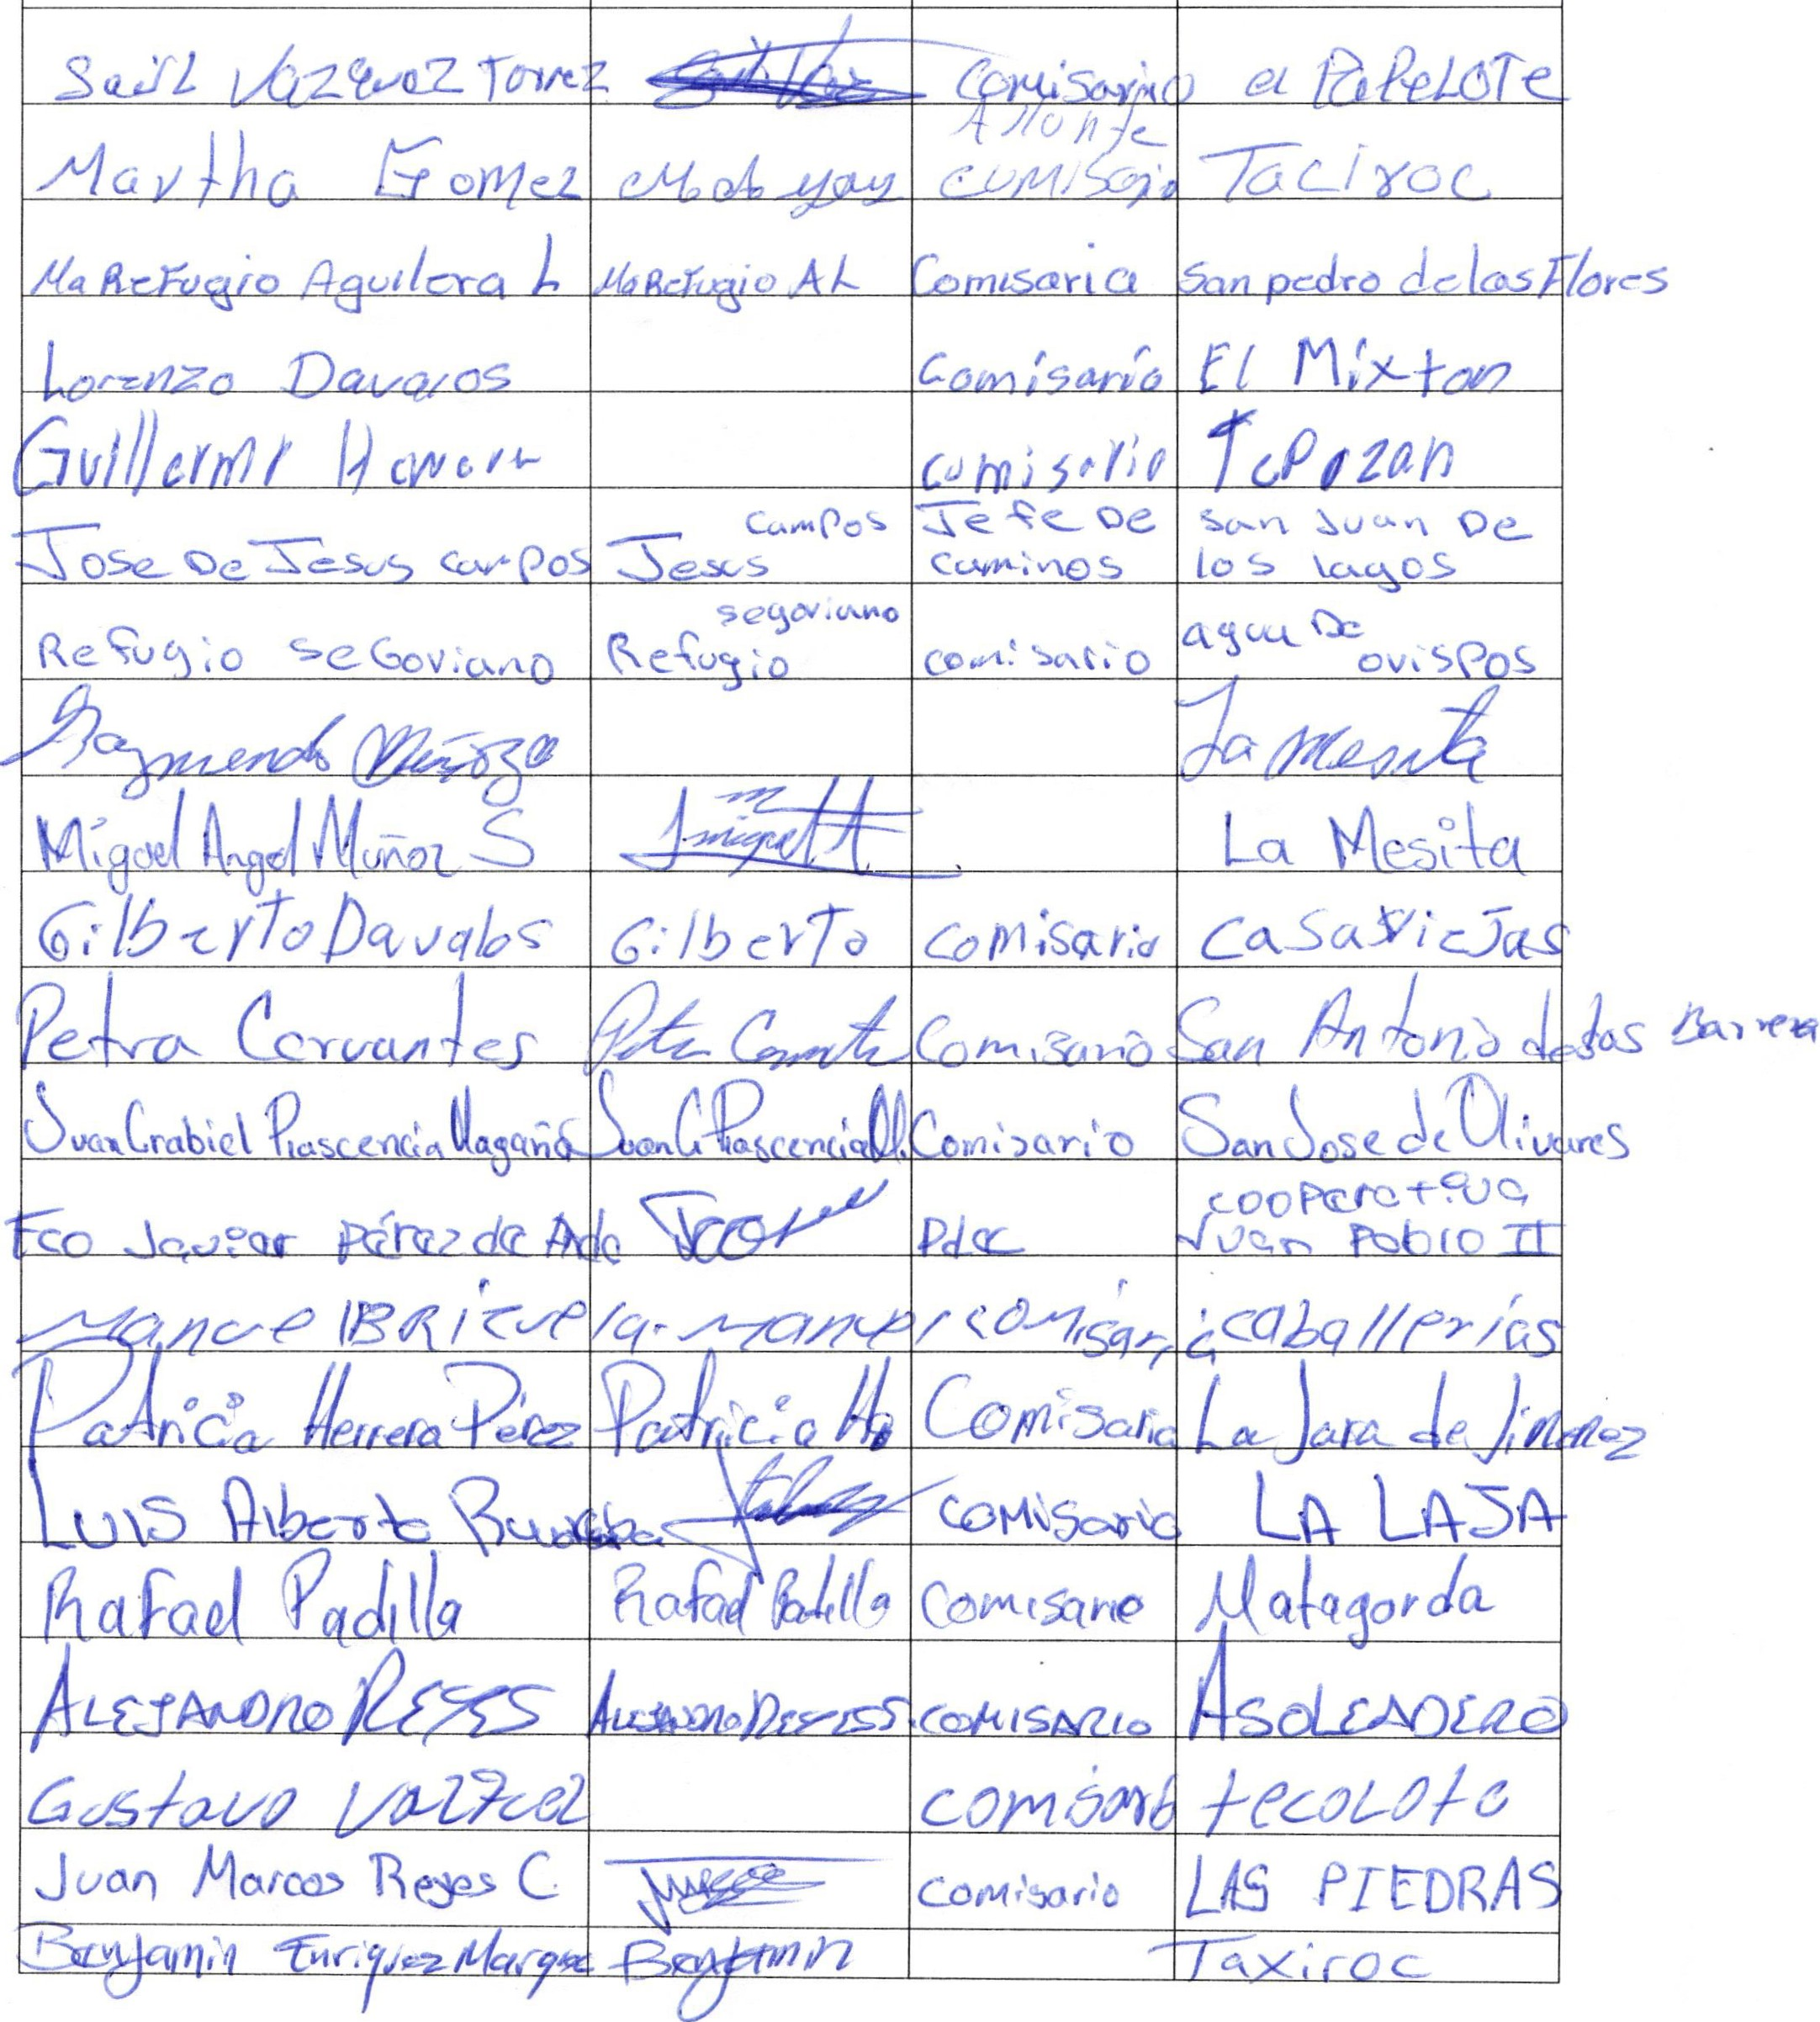 Saúl Vazquez Torrez comisario el PaPeLOTe
Martha Gomez Comisaria Taciroc
Ma Refugio Aguilera L Ma Refugio A L Comisaria San pedro de las Flores
Lorenzo Davalos comisario El Mixton
Guillermo comisario Tepozan
Jose De Jesus campos Jesus campos Jefe De caminos san Juan De los lagos
Refugio seGoviano Refugio segoviano comisario agua De ovispos
Raymundo Muñoz La Mesita
Miguel Angel Muñoz S La Mesita
Gilberto Davalos Gilberto comisario casas VieJas
Petra Cervantes Comisario San Antonio de las Barrera
Juan Grabiel Plascencia Magaña Juan G Plascencia M. Comisario San Jose de Olivares
Fco Javier pérez de Anda Pdte cooperativa Juan Pablo II
Manuel BRizuela Manuel comisari caballerías
Patricia Herrera Pérez Patricia Hp Comisaria La Jara de Jiménez
LUIS Alberto comisario LA LAJA
Rafael Padilla Rafael Padilla Comisario Matagorda
ALEJANDRO REYES ALEJANDRO REYES S. COMISARIO ASOLEADERO
Gustavo Vazquez comisario tecoLote
Juan Marcos Reyes C. comisario LAS PIEDRAS
Benjamin Enriquez Marque Benjamin Taxiroc